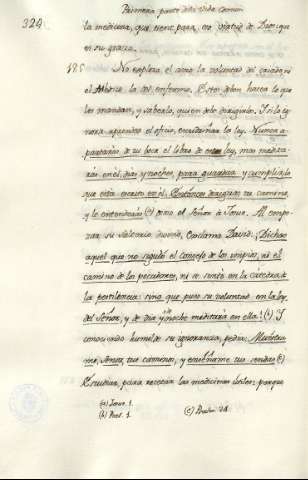 324.
Primera parte dela Vida Comun
la medicina, que tiene para, en virtud de Dios que
es su gracia.
175 No emplea el amo la voluntad del criado ni
el Medico la del enfermo. Estos deben hacer lo que
les mandan, y saberlo, quien debe dirigirlos. Si lo ig-
nora aprender el oficio, enseñarian la ley. Nunca a-
partarás de tu boca el libro de esta ley, mas medita-
rás en el, dias y noches, para guardar y cumplir lo
que esta escrito en el. Entónces dirigiras tu camino,
y le entenderás (a) dixo el Señor à Josue. Al empe-
zar su Salterio divino, exclama David: ¡Dichoso
aquel que no seguia el consejo de los impios, ni el
camino de los pecadores, ni se sentó en la catedra de
la pestilencia: sino que puso su voluntad en la ley
del Señor, y de dia y de noche meditaria en ella! (b) Y
conociendo humilde su ignorancia, pedia: Muestra-
me, Señor, tus caminos, y enseñame tus sendas (c)
Estudiar, para recetar las medicinas útiles: porque
(a) Josue. 1.
(b) Psal. 1.
(c) Psalm 24.